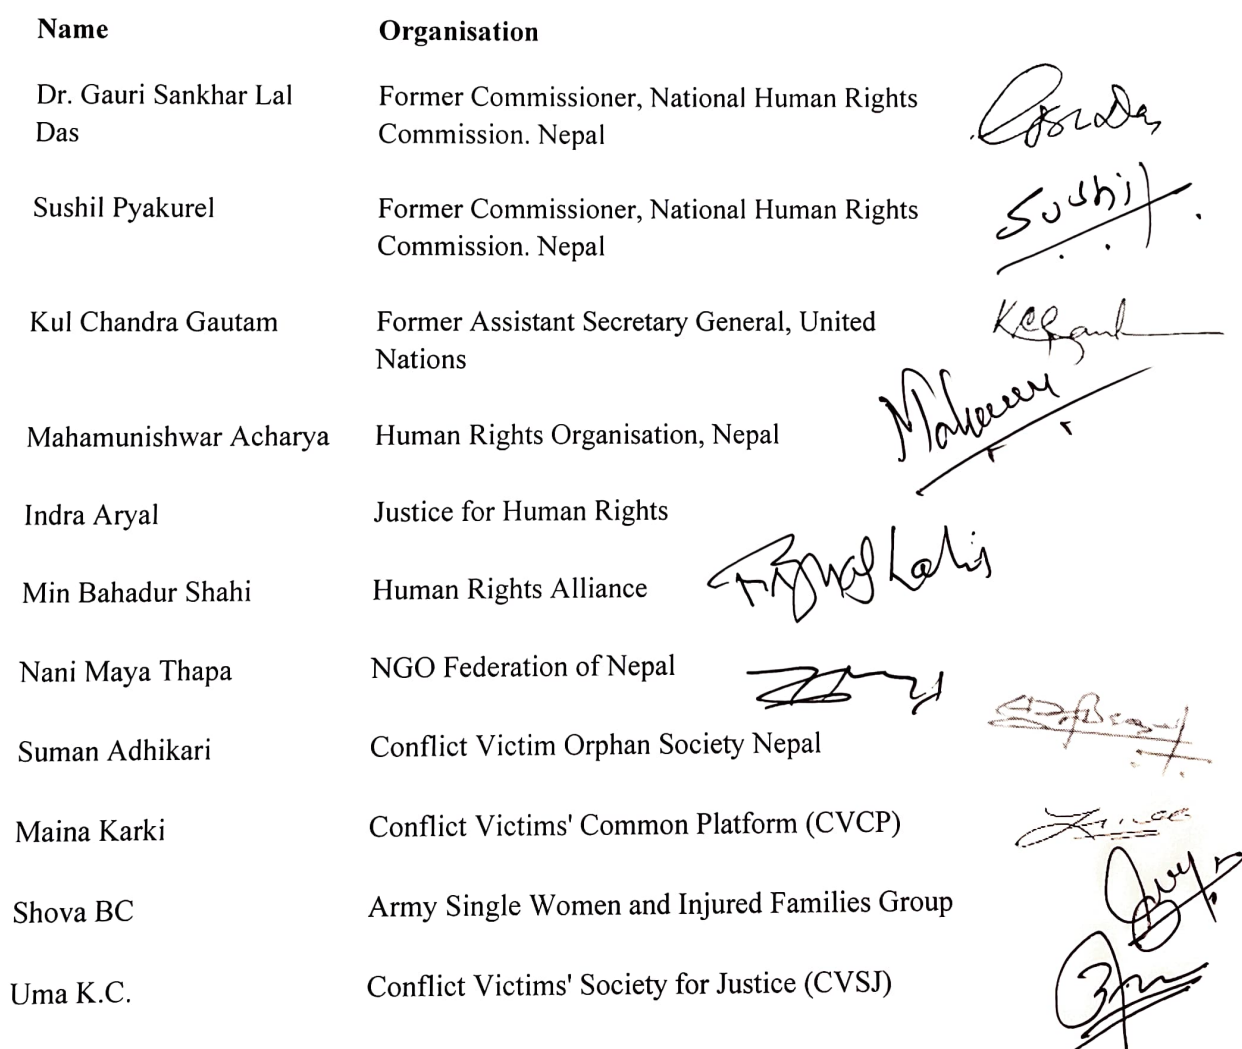 Name Organisation
Dr. Gauri Sankhar Lal Former Commissioner, National Human Rights
Das Commission. Nepal
Sushil Pyakurel Former Commissioner, National Human Rights
Commission. Nepal
Sushil
Kul Chandra Gautam Former Assistant Secretary General, United
Nations
Mahamunishwar Acharya Human Rights Organisation, Nepal
Indra Aryal Justice for Human Rights
Min Bahadur Shahi Human Rights Alliance
Nani Maya Thapa NGO Federation of Nepal
Suman Adhikari Conflict Victim Orphan Society Nepal
Maina Karki Conflict Victims' Common Platform (CVCP)
Shova BC Army Single Women and Injured Families Group
Uma K.C. Conflict Victims' Society for Justice (CVSJ)